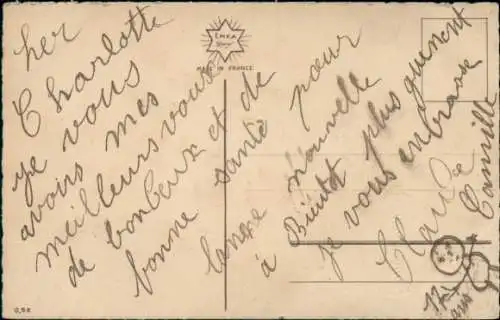 her
Charlotte
je vous
avoirs mes
meilleurs vous
de bonbeux et de
bonne santé pour
lanexe nouvelle
à Bientôt plus
je vous enbrasse
Claude
Camille
EMKA
MADE IN FRANCE